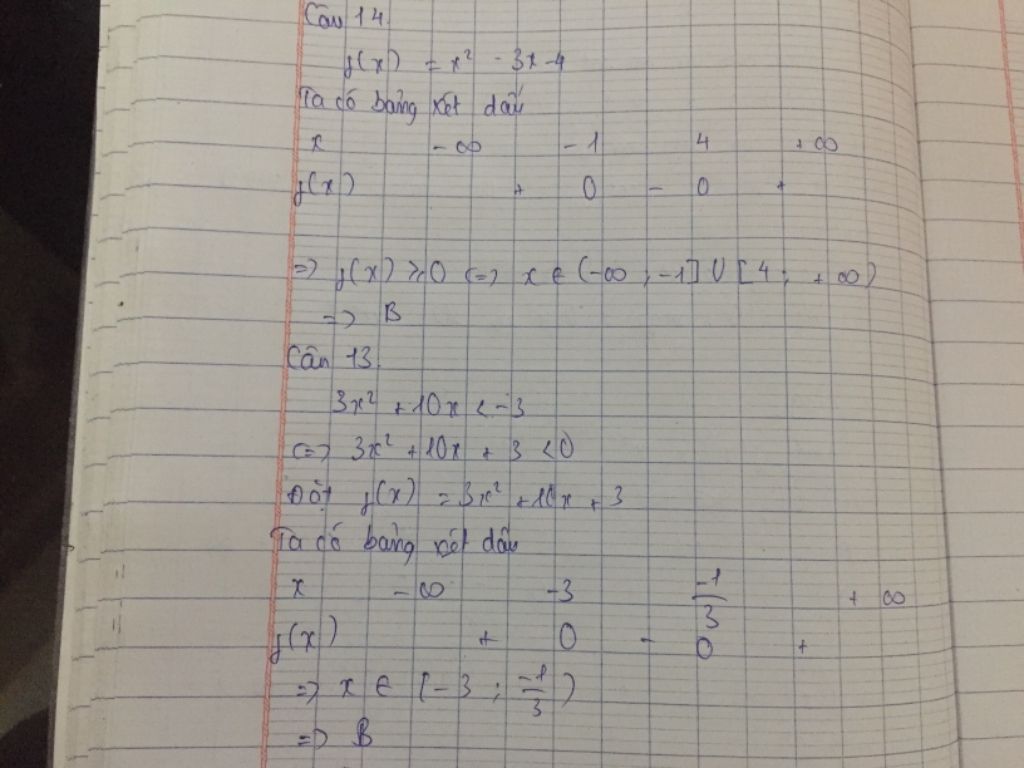 Câu 14.
f(x) = x² - 3x - 4
Ta có bảng xét dấu
x -∞ -1 4 +∞
f(x) + 0 - 0 +
=> f(x) ⩾ 0 <=> x ∈ (-∞ ; -1] ∪ [4 ; +∞)
=> B
Câu 13.
3x² + 10x < -3
<=> 3x² + 10x + 3 < 0
Đặt f(x) = 3x² + 10x + 3
Ta có bảng xét dấu
x -∞ -3 -1/3 +∞
f(x) + 0 - 0 +
=> x ∈ (-3 ; -1/3)
=> B